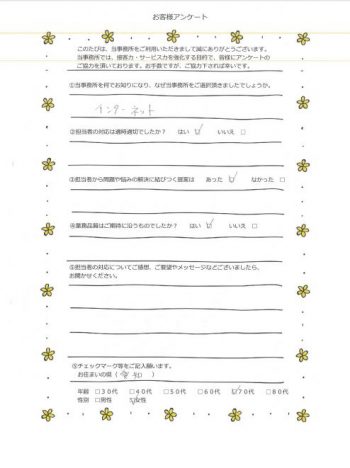 お客様アンケート
このたびは、当事務所をご利用いただきまして誠にありがとうございます。
当事務所では、接客力・サービス力を強化する目的で、皆様にアンケートの
ご協力を頂いております。お手数ですが、ご協力下されば幸いです。
①当事務所を何でお知りになり、なぜ当事務所をご選択頂きましたでしょうか。
インターネット
②担当者の対応は適時適切でしたか？ はい ☑ いいえ □
③担当者から問題や悩みの解決に結びつく提案は あった ☑ なかった □
④業務品質はご期待に沿うものでしたか？ はい ☑ いいえ □
⑤担当者の対応についてご感想、ご要望やメッセージなどございましたら、
お聞かせください。
⑤チェックマーク等をご記入願います。
お住まいの県（愛知）
年齢 □３０代 □４０代 □５０代 □６０代 ☑７０代 □８０代
性別 □男性 ☑女性